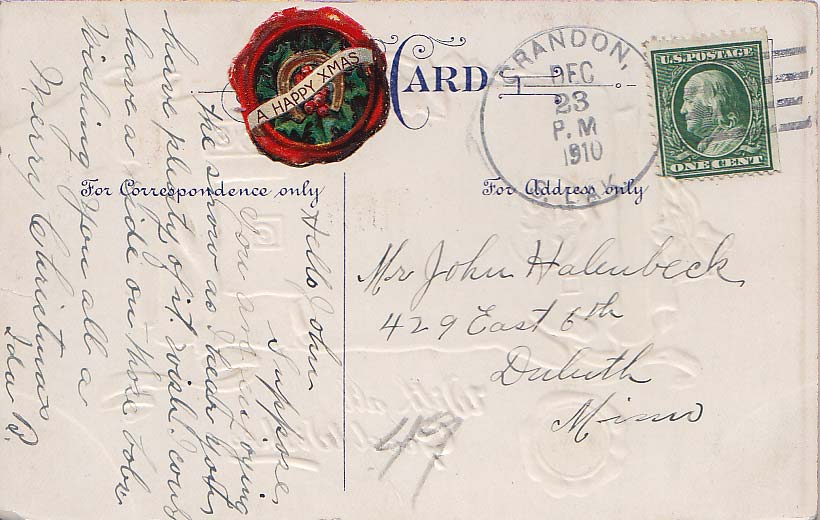 A HAPPY XMAS
CARD
CRANDON,
DEC
23
P. M
1910
U.S. POSTAGE
ONE CENT
For Correspondence only
For Address only
Hello John
Suppose
you are enjoying
the snow as I hear you
have plenty of it. wish I could
have a ride on those bobs
Wishing you all a
Merry Christmas
Ida B.
Mr John Halenbeck
429 East 6th
Duluth
Minn